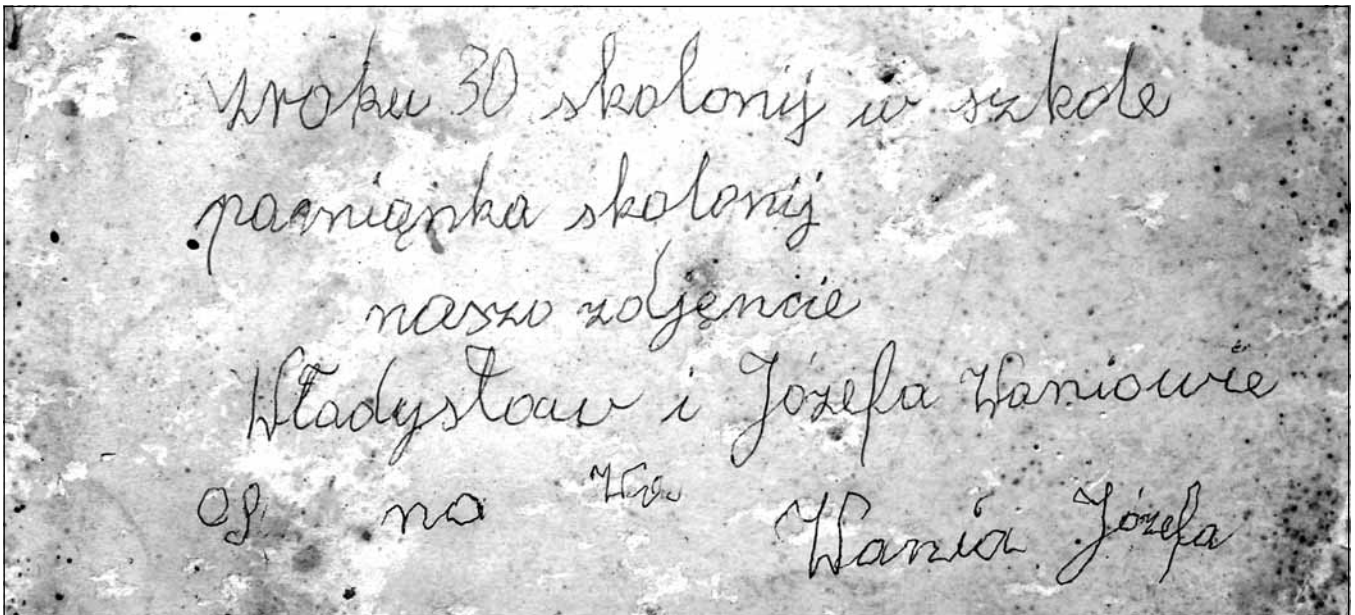 zroku 30 skolonij w szkole
pamiąnka skolonij
naszo zdjęncie
Władysław i Józefa Waniowie
na
Wania Józefa